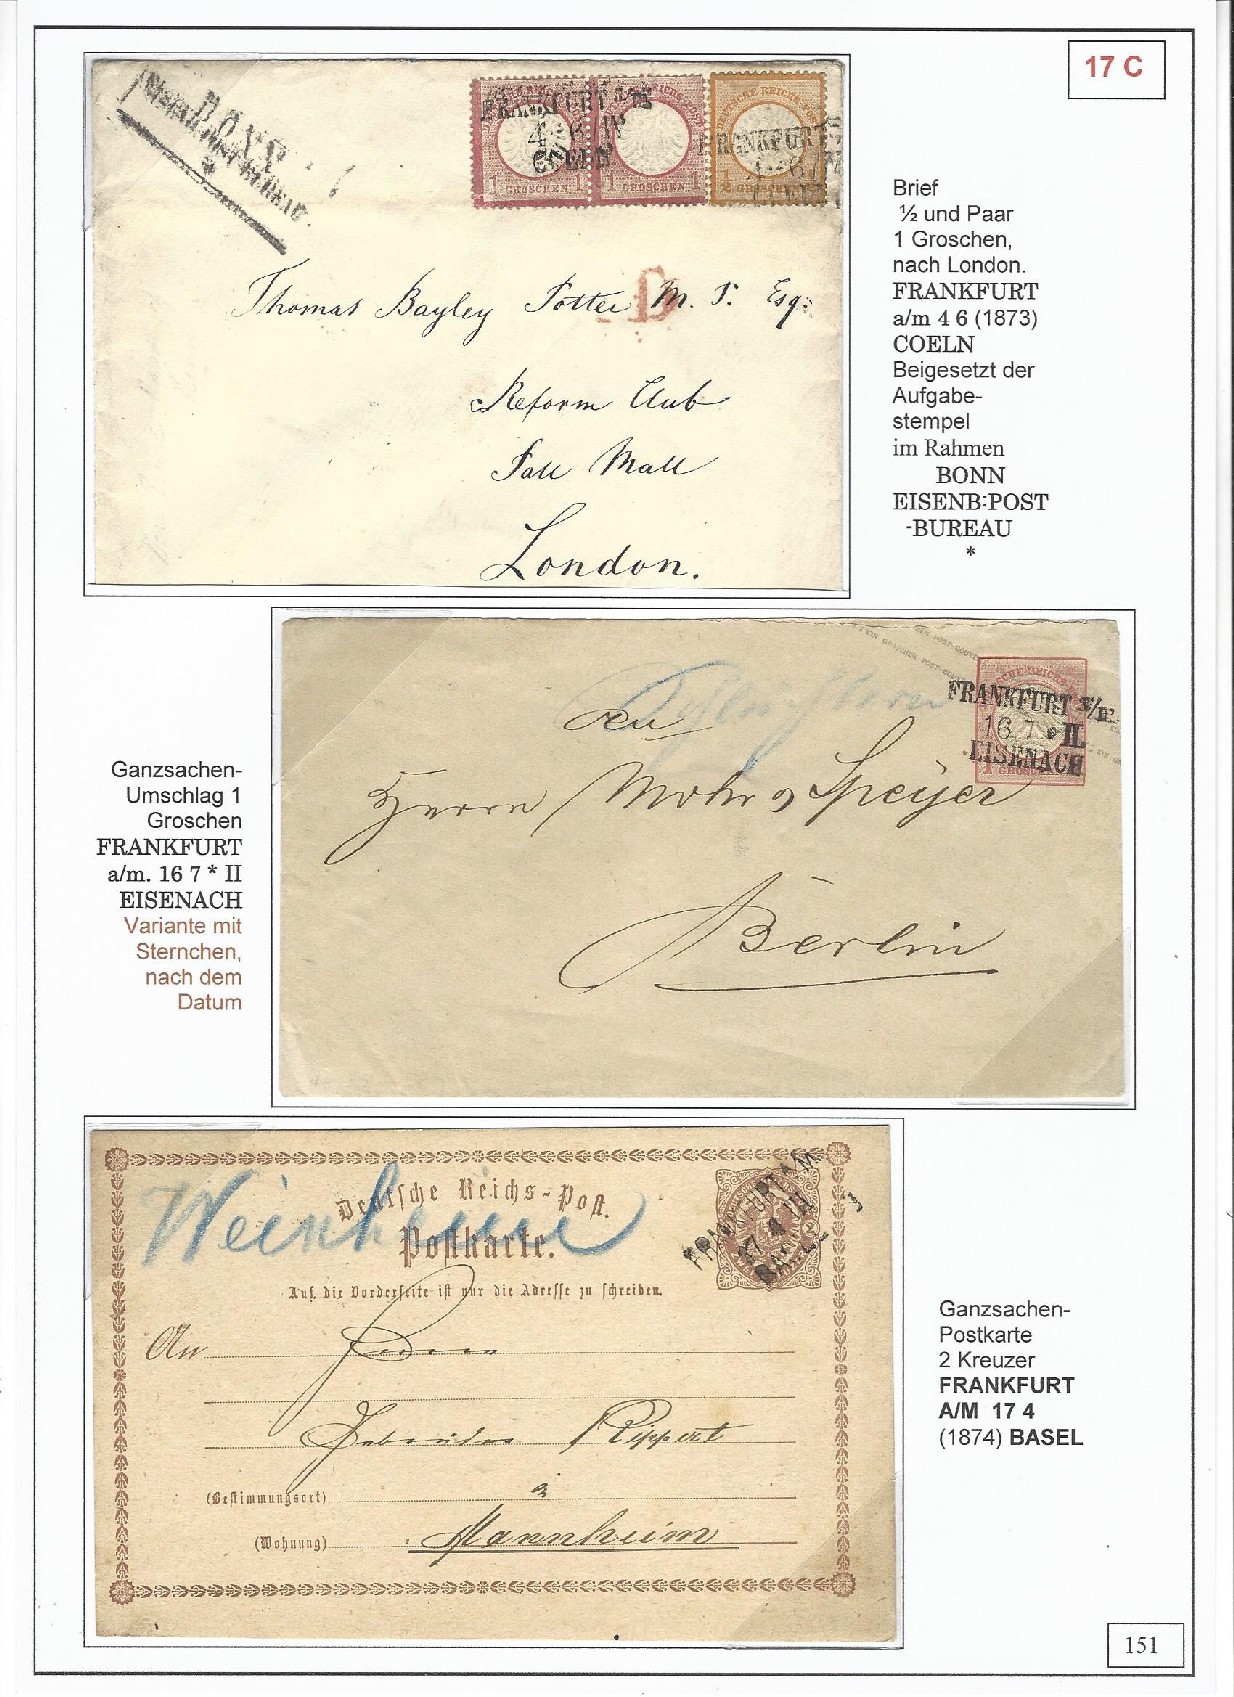 17 C
BONN
EISENB:POST-BUREAU.
*
FRANKFURT
4 6 IV
COELN
FRANKFURT
4 6
COELN
1 GROSCHEN 1
1 GROSCHEN 1
1/2 GROSCHEN
Thomas Bayley Potter M. P. Esq:
Reform Club
Pall Mall
London.
Brief
½ und Paar
1 Groschen,
nach London.
FRANKFURT
a/m 4 6 (1873)
COELN
Beigesetzt der
Aufgabe-
stempel
im Rahmen
BONN
EISENB:POST
-BUREAU
*
FRANKFURT a/m.
16 7 * II
EISENACH
Herrn Mohr & Speyer
Berlin
Ganzsachen-
Umschlag 1
Groschen
FRANKFURT
a/m. 16 7 * II
EISENACH
Variante mit
Sternchen,
nach dem
Datum
Weinheim
Deutsche Reichs-Post.
Postkarte.
Auf die Vorderseite ist nur die Adresse zu schreiben.
FRANKFURT A/M
17 4 III
BASEL
An
Gebrüder Rippert
(Bestimmungsort)
(Wohnung)
Mannheim
Ganzsachen-
Postkarte
2 Kreuzer
FRANKFURT
A/M 17 4
(1874) BASEL
151